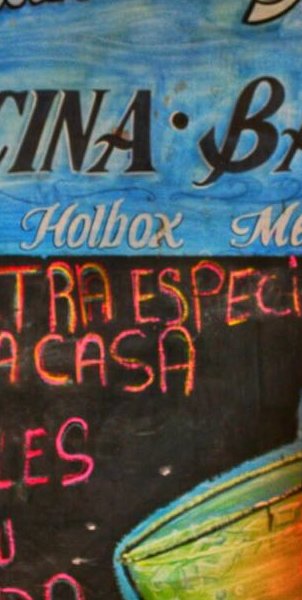 CINA · Ba
Holbox Me
TRA ESPECI
A CASA
LES
U
DA